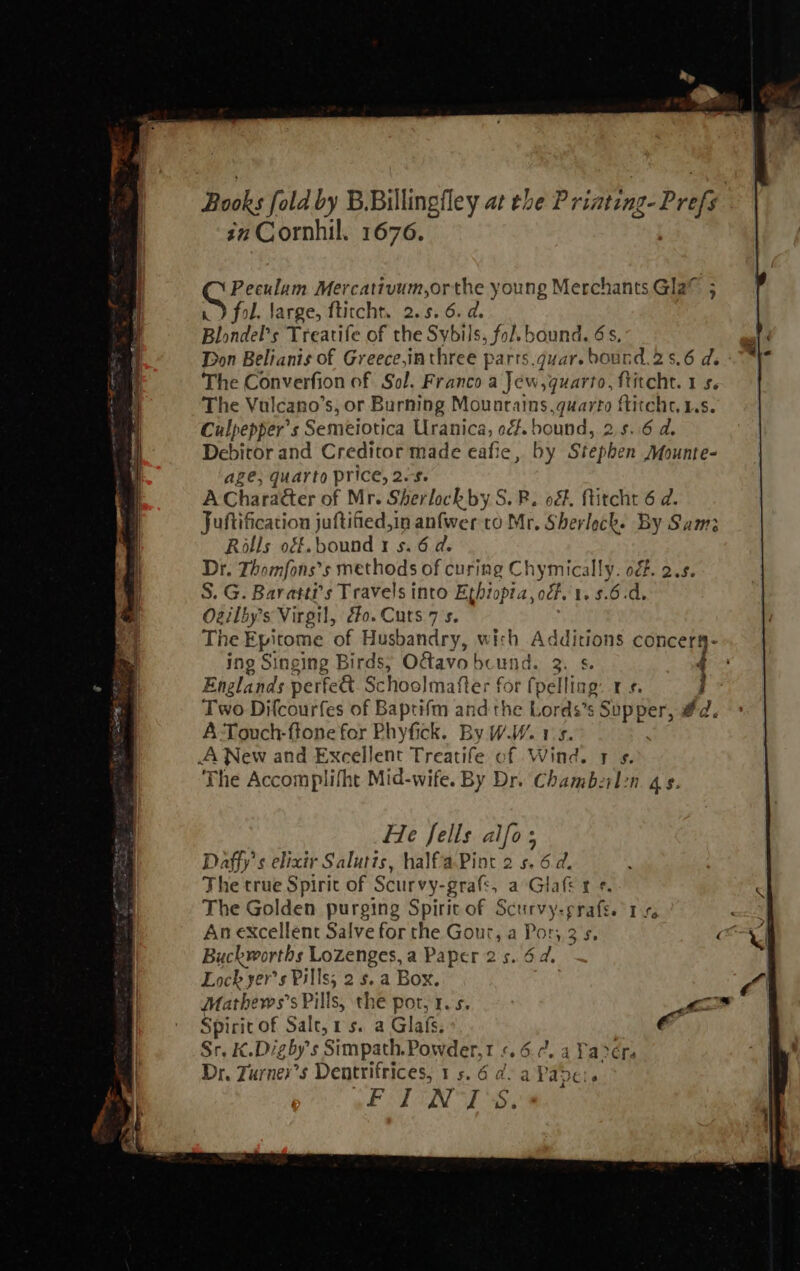 Books ſold by B.Billingſley at the Printing-Preſs
in Cornhil. 1676.
SPeculum Mercativum,or the young Merchants Glaſ ;
fol. large, ſtitcht. 2. s. 6. d.
Blondel's Treatiſe of the Sybils, fol. bound. 6 s,
Don Belianis of Greece,in three parts.quar. bound. 2 s. 6 d.
The Converſion of Sol. Franco a Jew,quarto, ſtitcht. 1 s.
The Vulcano's, or Burning Mountains,quarto ſtitcht. 1.s.
Culpepper's Semeiotica Uranica, oct. bound, 2 s. 6 d.
Debitor and Creditor made eaſie, by Stephen Mounte-
age, quarto price, 2. s.
A Character of Mr. Sherlock by S. R. oct. ſtitcht 6 d.
Juſtification juſtified,in anſwer to Mr. Sherlock. By Sam;
Rolls oct. bound 1 s. 6 d.
Dr. Thomſons's methods of curing Chymically. oct. 2.s.
S. G. Baratti's Travels into Ethiopia, oct. 1. s.6.d.
Ogilby's Virgil, 8o. Cuts 7 s.
The Epitome of Husbandry, with Additions concern-
ing Singing Birds, Octavo bound. 3. s.
Englands perfect Schoolmaſter for ſpelling. 1 s.
Two Diſcourſes of Baptiſm and the Lords's Supper, 8d.
A Touch-ſtone for Phyſick. By W.W. 1 s.
A New and Excellent Treatiſe of Wind. 1 s.
The Accompliſht Mid-wife. By Dr. Chamberlin 4 s.
He ſells alſo;
Daffy's elixir Salutis, half a Pint 2 s. 6 d.
The true Spirit of Scurvy-graſs, a Glaſs 1 s.
The Golden purging Spirit of Scurvy-graſs. 1 s.
An excellent Salve for the Gout, a Pot, 3 s.
Buckworths Lozenges, a Paper 2 s. 6d.
Lockyer's Pills; 2 s. a Box.
Mathews's Pills, the pot, 1. s.
Spirit of Salt, 1 s. a Glaſs.
Sr. K.Digby's Simpath.Powder,1 s. 6 d. a Paper.
Dr. Turner's Dentrifrices, 1 s. 6 d. a Paper.
FINIS.